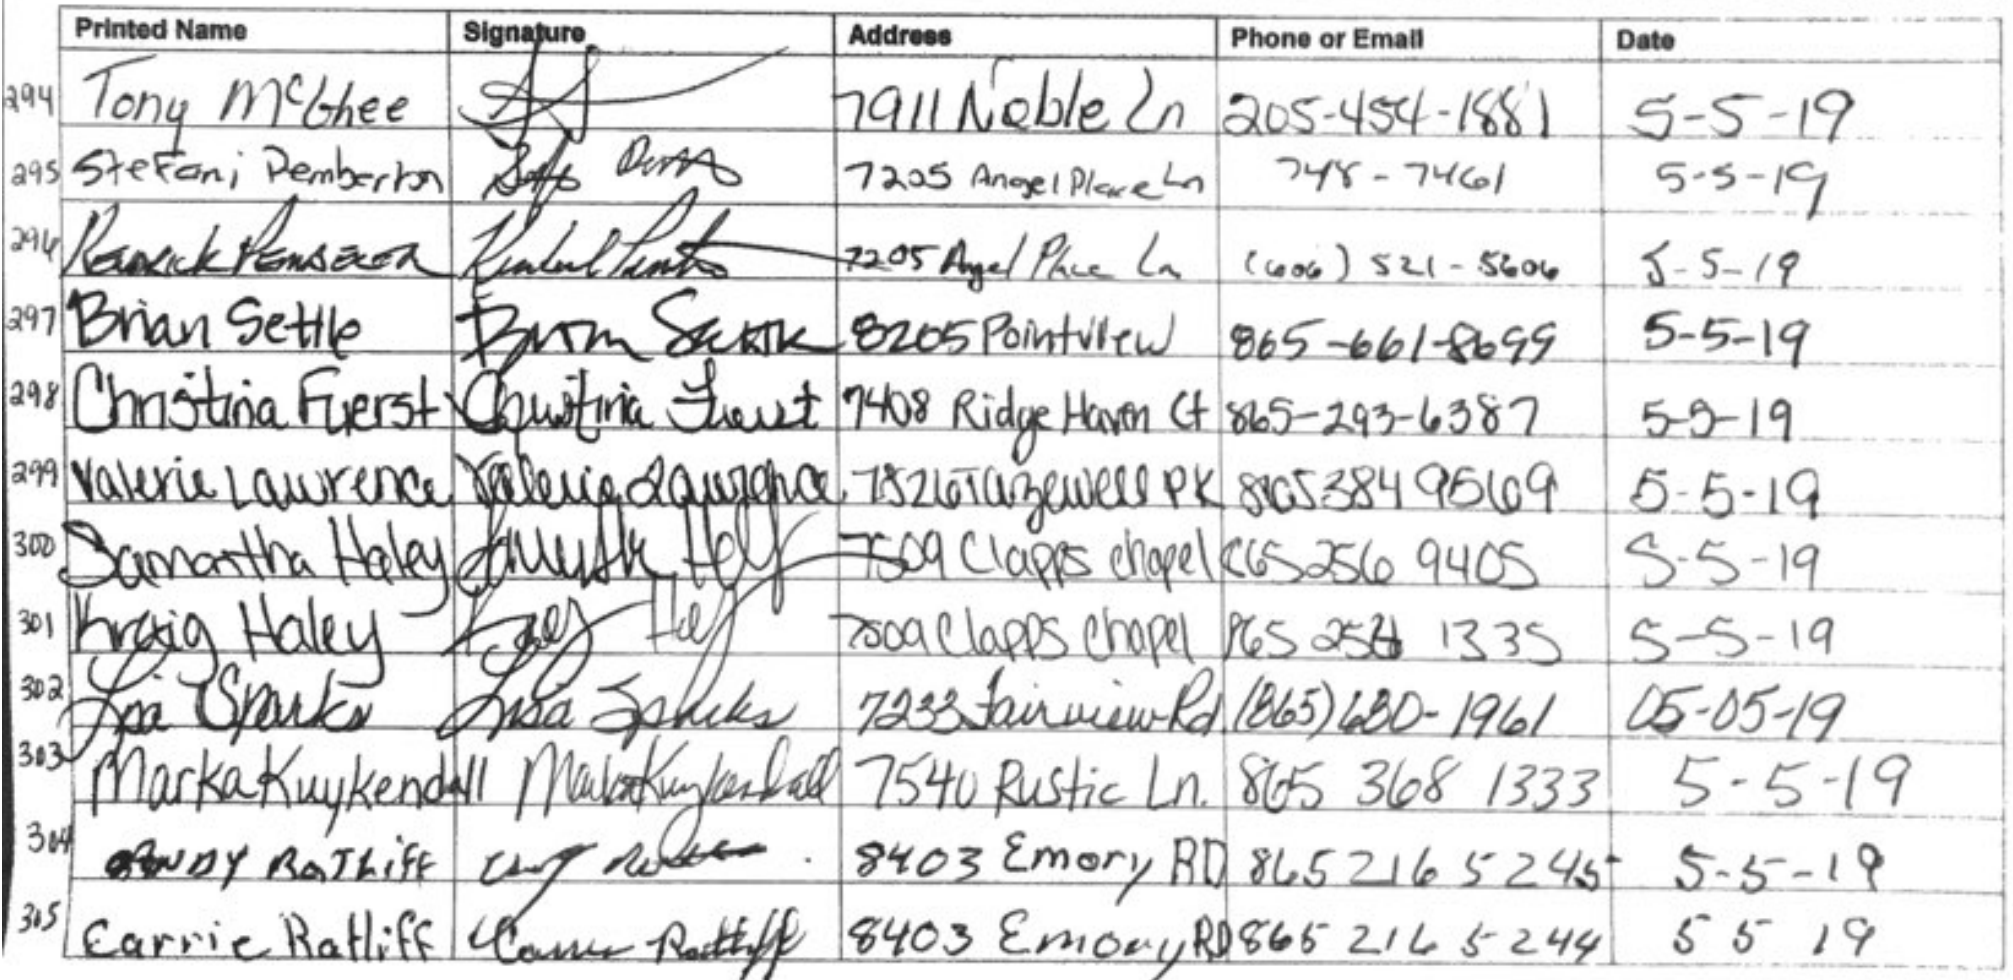 Printed Name Signature Address Phone or Email Date
294 Tony McGhee 7911 Noble Ln 205-454-1881 5-5-19
295 Stefani Pemberton 7205 Angel Place Ln 748-7461 5-5-19
296 7205 Angel Place Ln (606) 521-5606 5-5-19
297 Brian Settle Brian Settle 8205 Pointview 865-661-8699 5-5-19
298 Christina Fuerst Christina Fuerst 7408 Ridge Haven Ct 865-293-6387 5-5-19
299 Valerie Lawrence Valerie Lawrence 7826 Tazewell PK 865 384 9569 5-5-19
300 Samantha Haley 7509 Clapps chapel 865 256 9405 5-5-19
301 Kraig Haley 7509 Clapps Chapel 865 1335 5-5-19
302 Lisa Sparks Lisa Sparks 7233 Fairview Rd (865) 680-1961 05-05-19
303 Marka Kuykendall Marka Kuykendall 7540 Rustic Ln. 865 368 1333 5-5-19
304 ANDY RATLIFF 8403 Emory RD 865 216 5245 5-5-19
305 Carrie Ratliff Carrie Ratliff 8403 Emory RD 865 216 5244 5 5 19